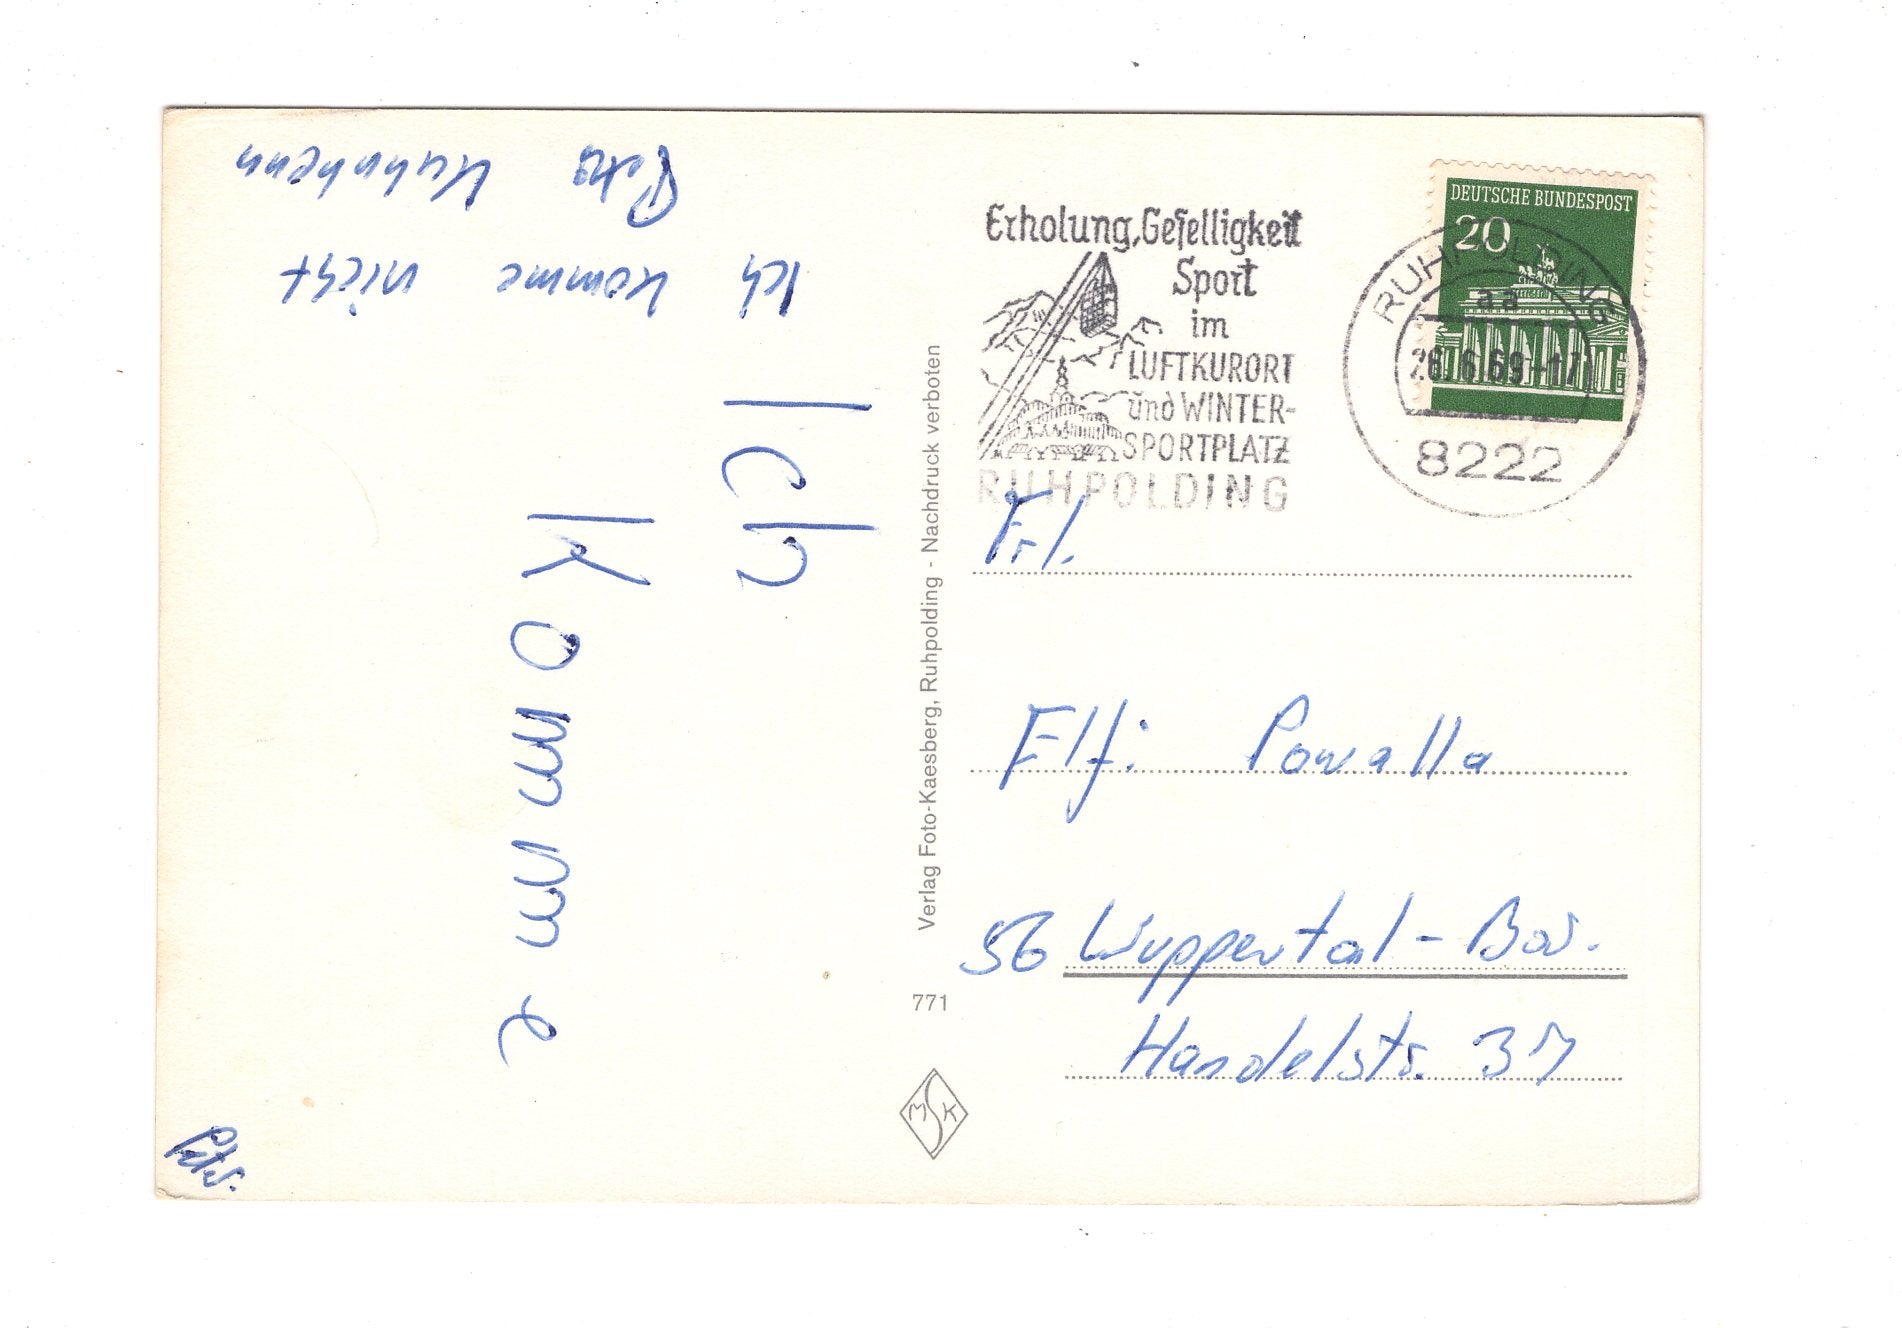 Peter Kuhnhenn
Ich komme nicht
Ich
komme
Peter.
Verlag Foto-Kaesberg, Ruhpolding - Nachdruck verboten
771
MSK
Erholung, Geſelligkeit
Sport
im
LUFTKURORT
und WINTER-
SPORTPLATZ
RUHPOLDING
DEUTSCHE BUNDESPOST
20
RUHPOLDING
aa
26.6.69-17
8222
Frl.
Elfi Powalla
56 Wuppertal-Bar.
Handelstr. 37